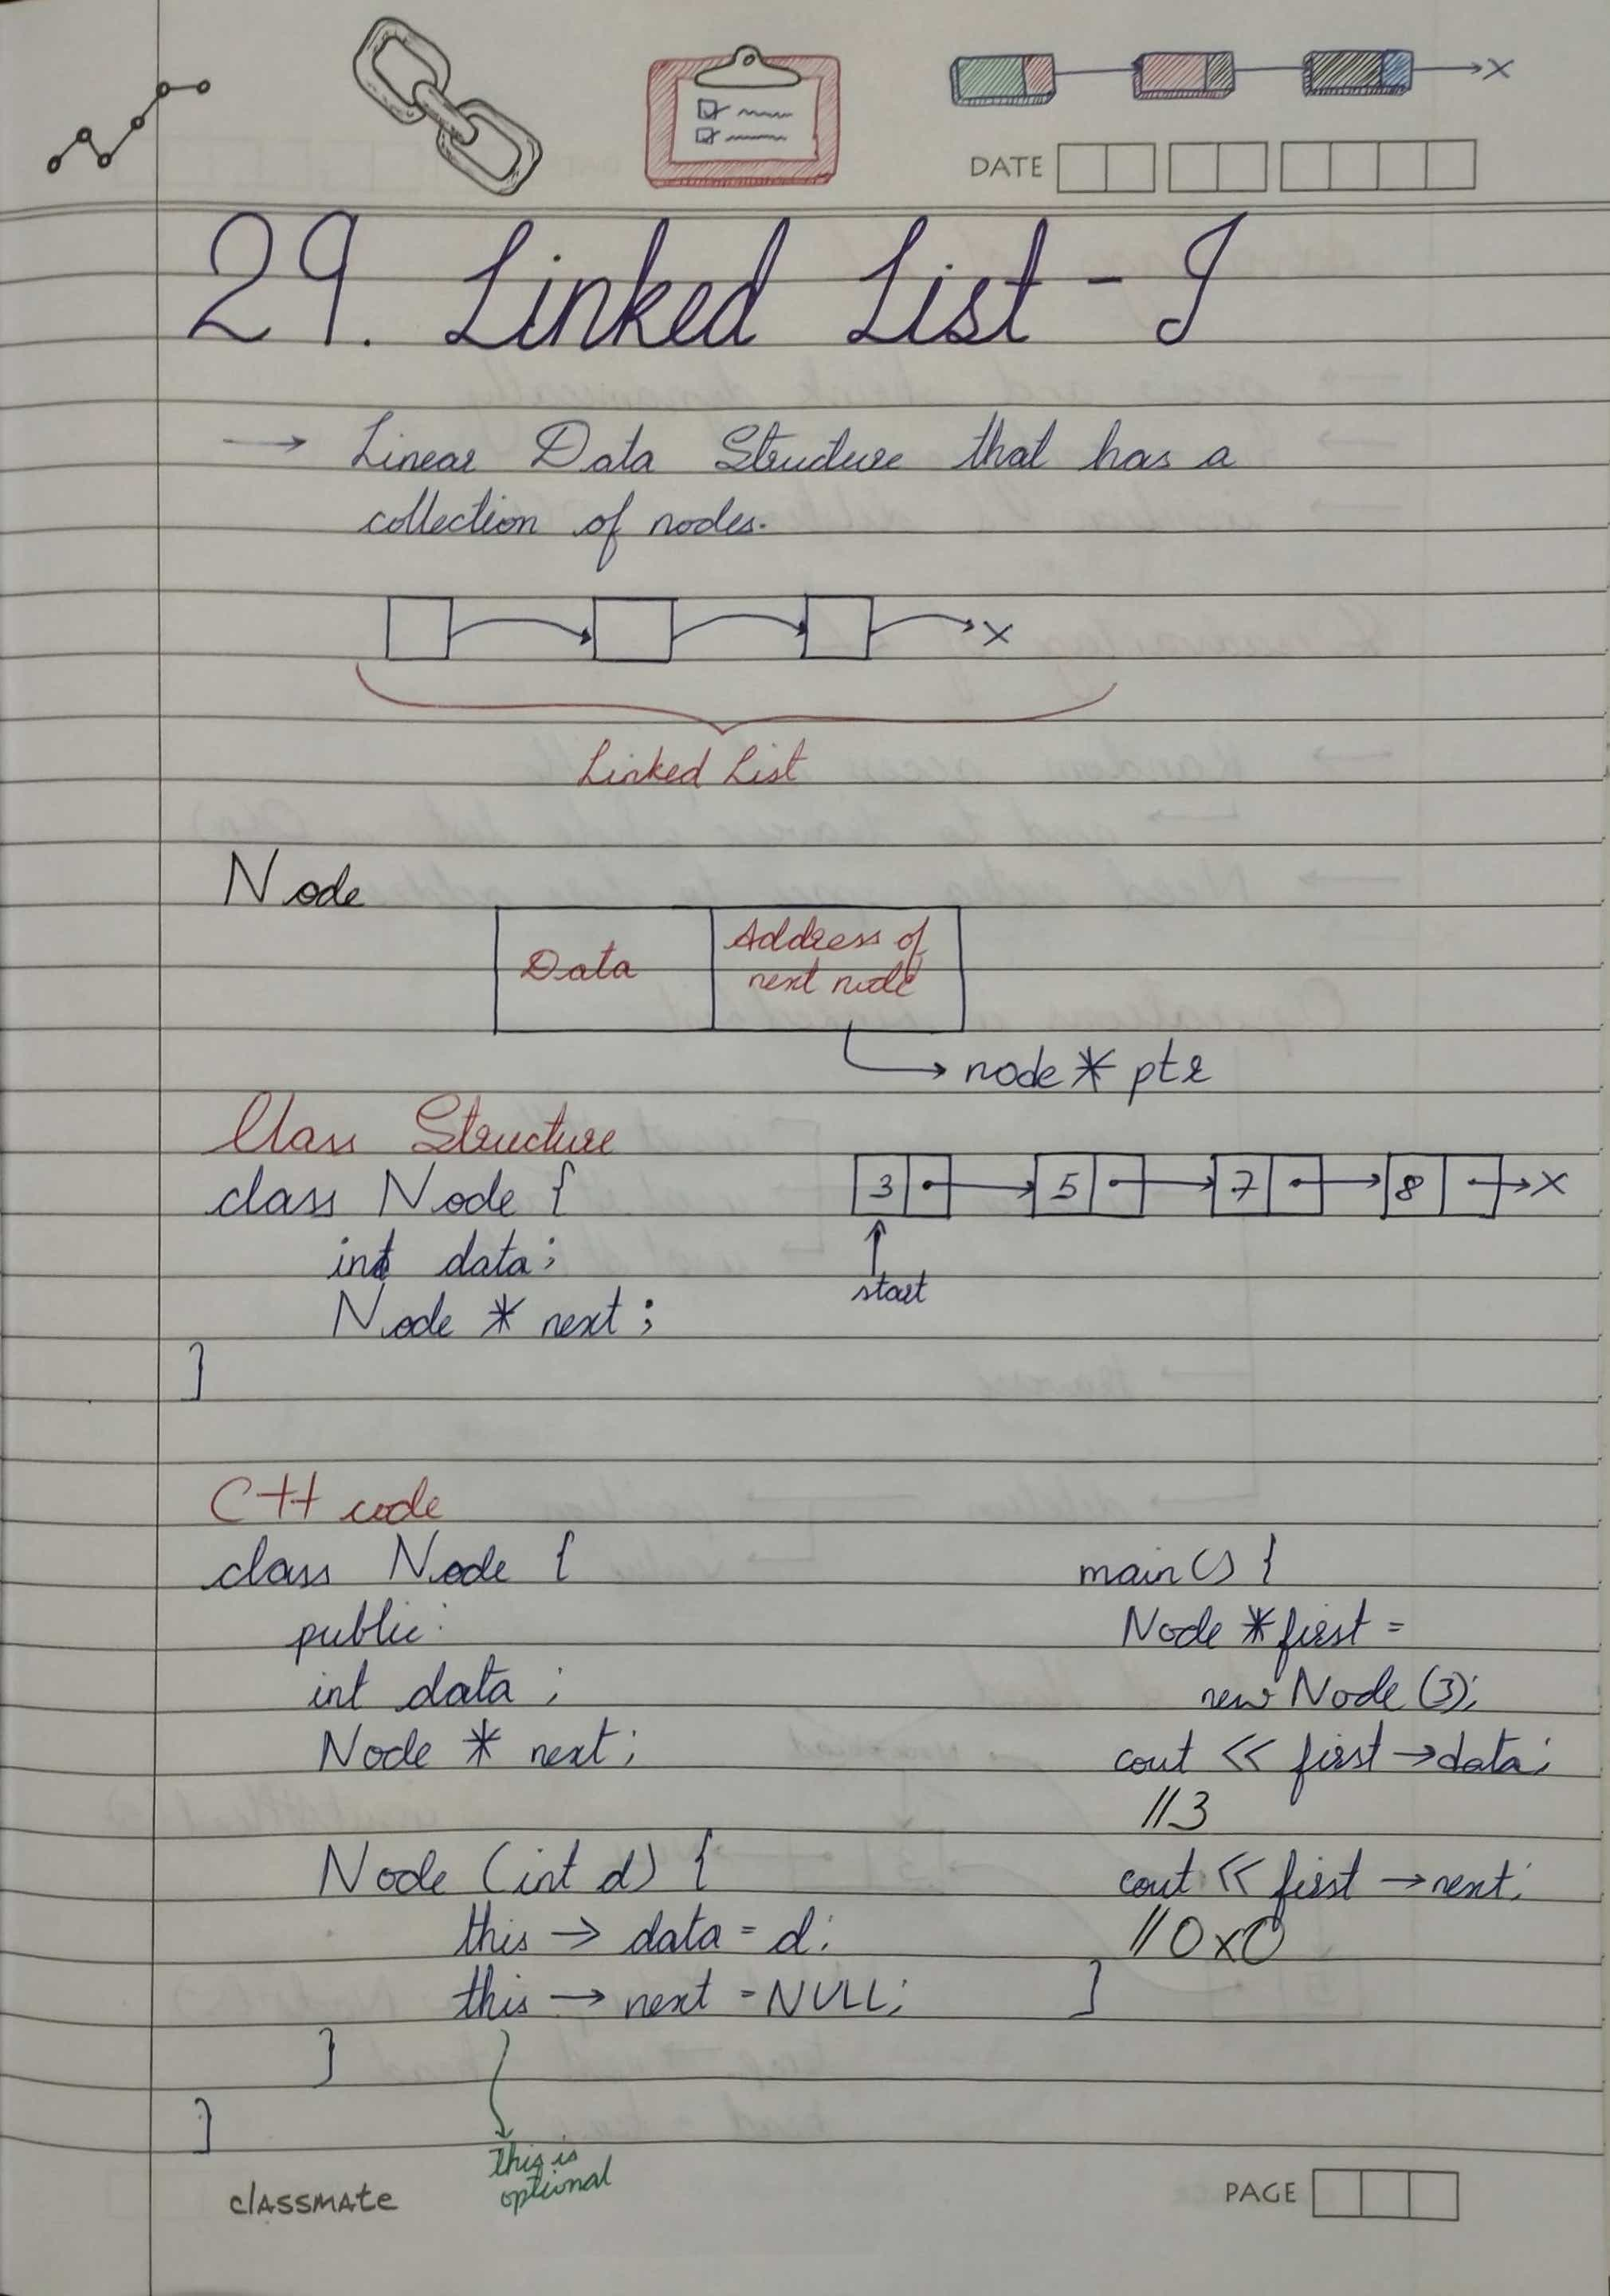 DATE
29. Linked List - I
→ Linear Data Structure that has a
collection of nodes.
Linked List
Node
Data
Address of
next node
→ node * ptr
Class Structure
class Node {
int data;
Node * next;
}
3 5 7 8 X
start
C++ code
class Node {
public:
int data;
Node * next;
Node (int d) {
this → data = d;
this → next = NULL;
}
}
This is
optional
main() {
Node * first =
new Node (3);
cout << first → data;
//3
cout << first → next;
//0x0
}
classmate
PAGE